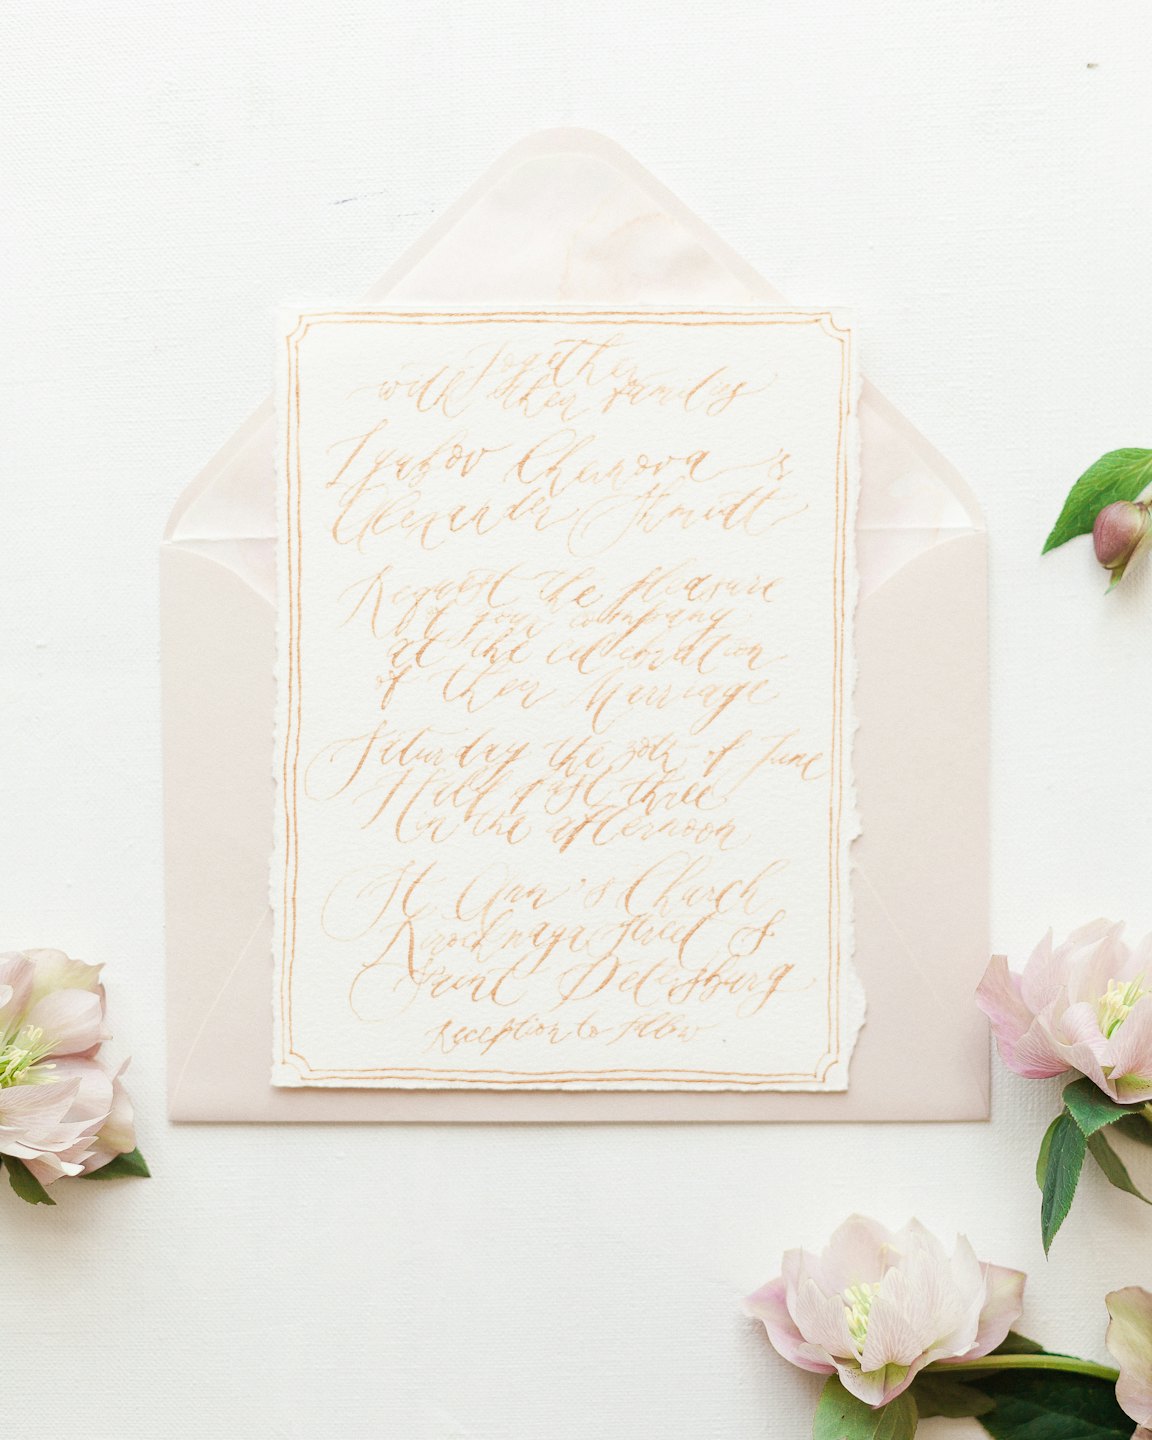 Together
with their familys
Lyubov Chernova &
Alexander Shmidt
Request the pleasure
of your company
at the celebration
of their Marriage
Saturday the 30th of June
Half past three
in the afternoon
St. Ann's Church
Street &
Saint Petersburg
Reception to follow